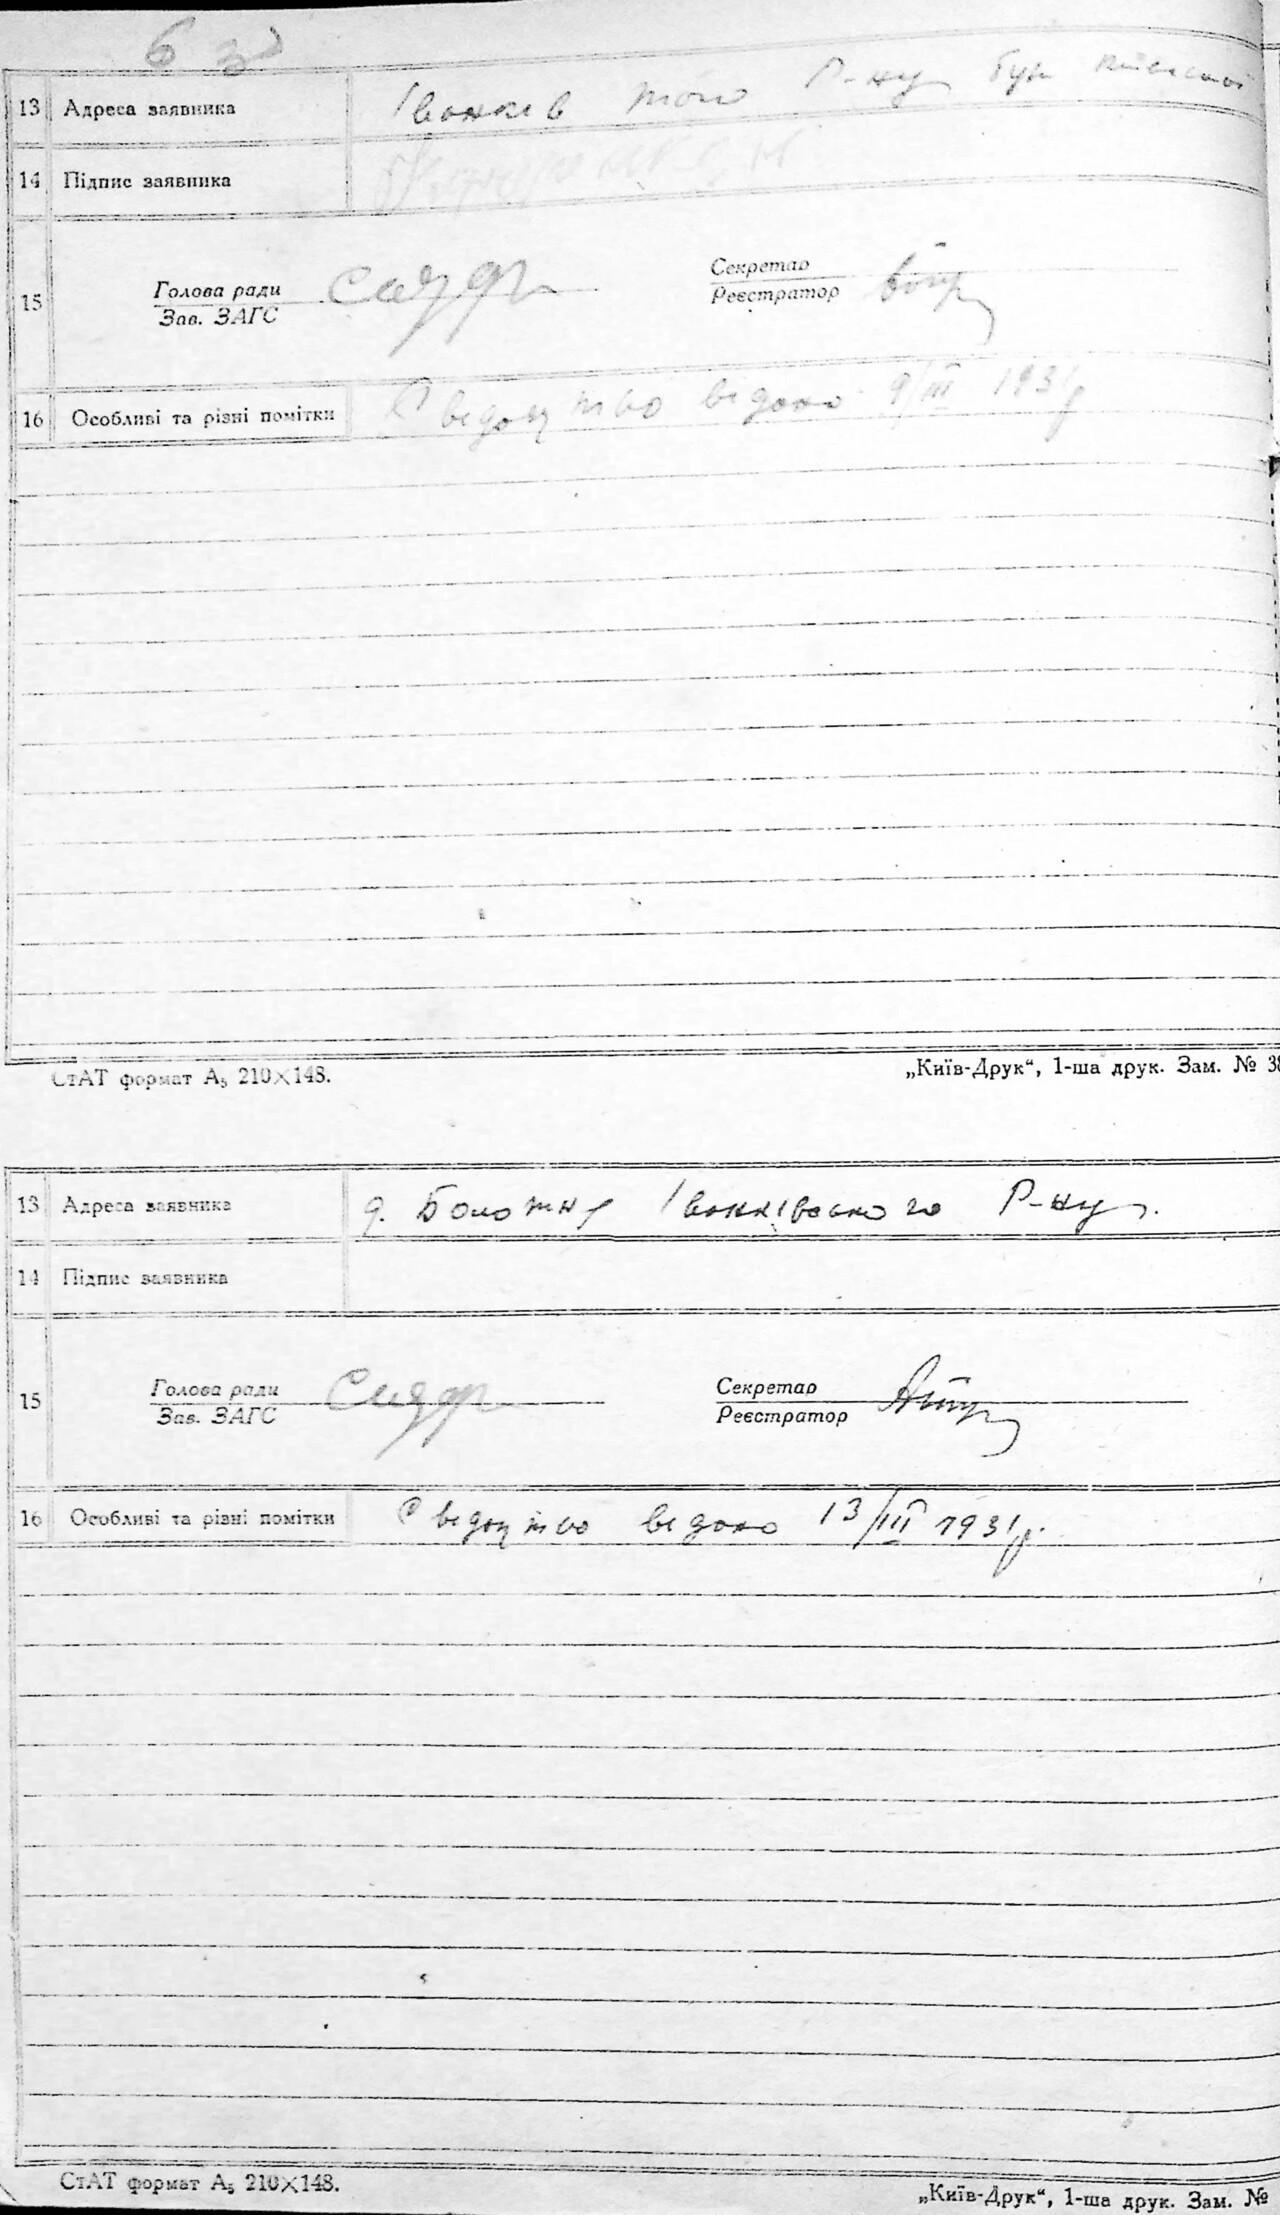 13 Адреса заявника Іванків того Р-ну
14 Підпис заявника
Голова ради Секретар
15
Зав. ЗАГС Реєстратор
16 Особливі та різні помітки Сведоцтво ведано 9/III 1931р
СтАТ формат А₅ 210×148. „Київ-Друк“, 1-ша друк. Зам. № 38
13 Адреса заявника д. Болотня Іванківського Р-ну.
14 Підпис заявника
Голова ради Секретар
15
Зав. ЗАГС Реєстратор
16 Особливі та різні помітки Сведоцтво ведано 13/III 1931р.
СтАТ формат А₅ 210×148. „Київ-Друк“, 1-ша друк. Зам. №